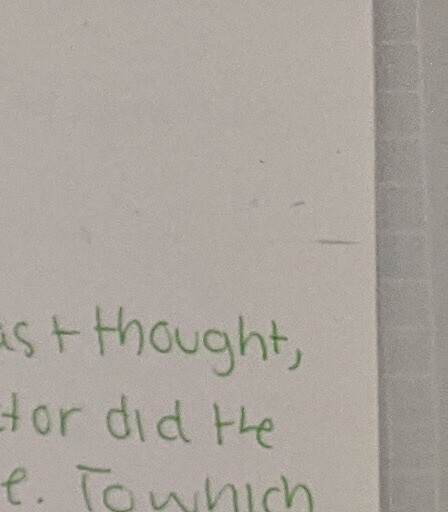 ast thought,
tor did the
e. To which